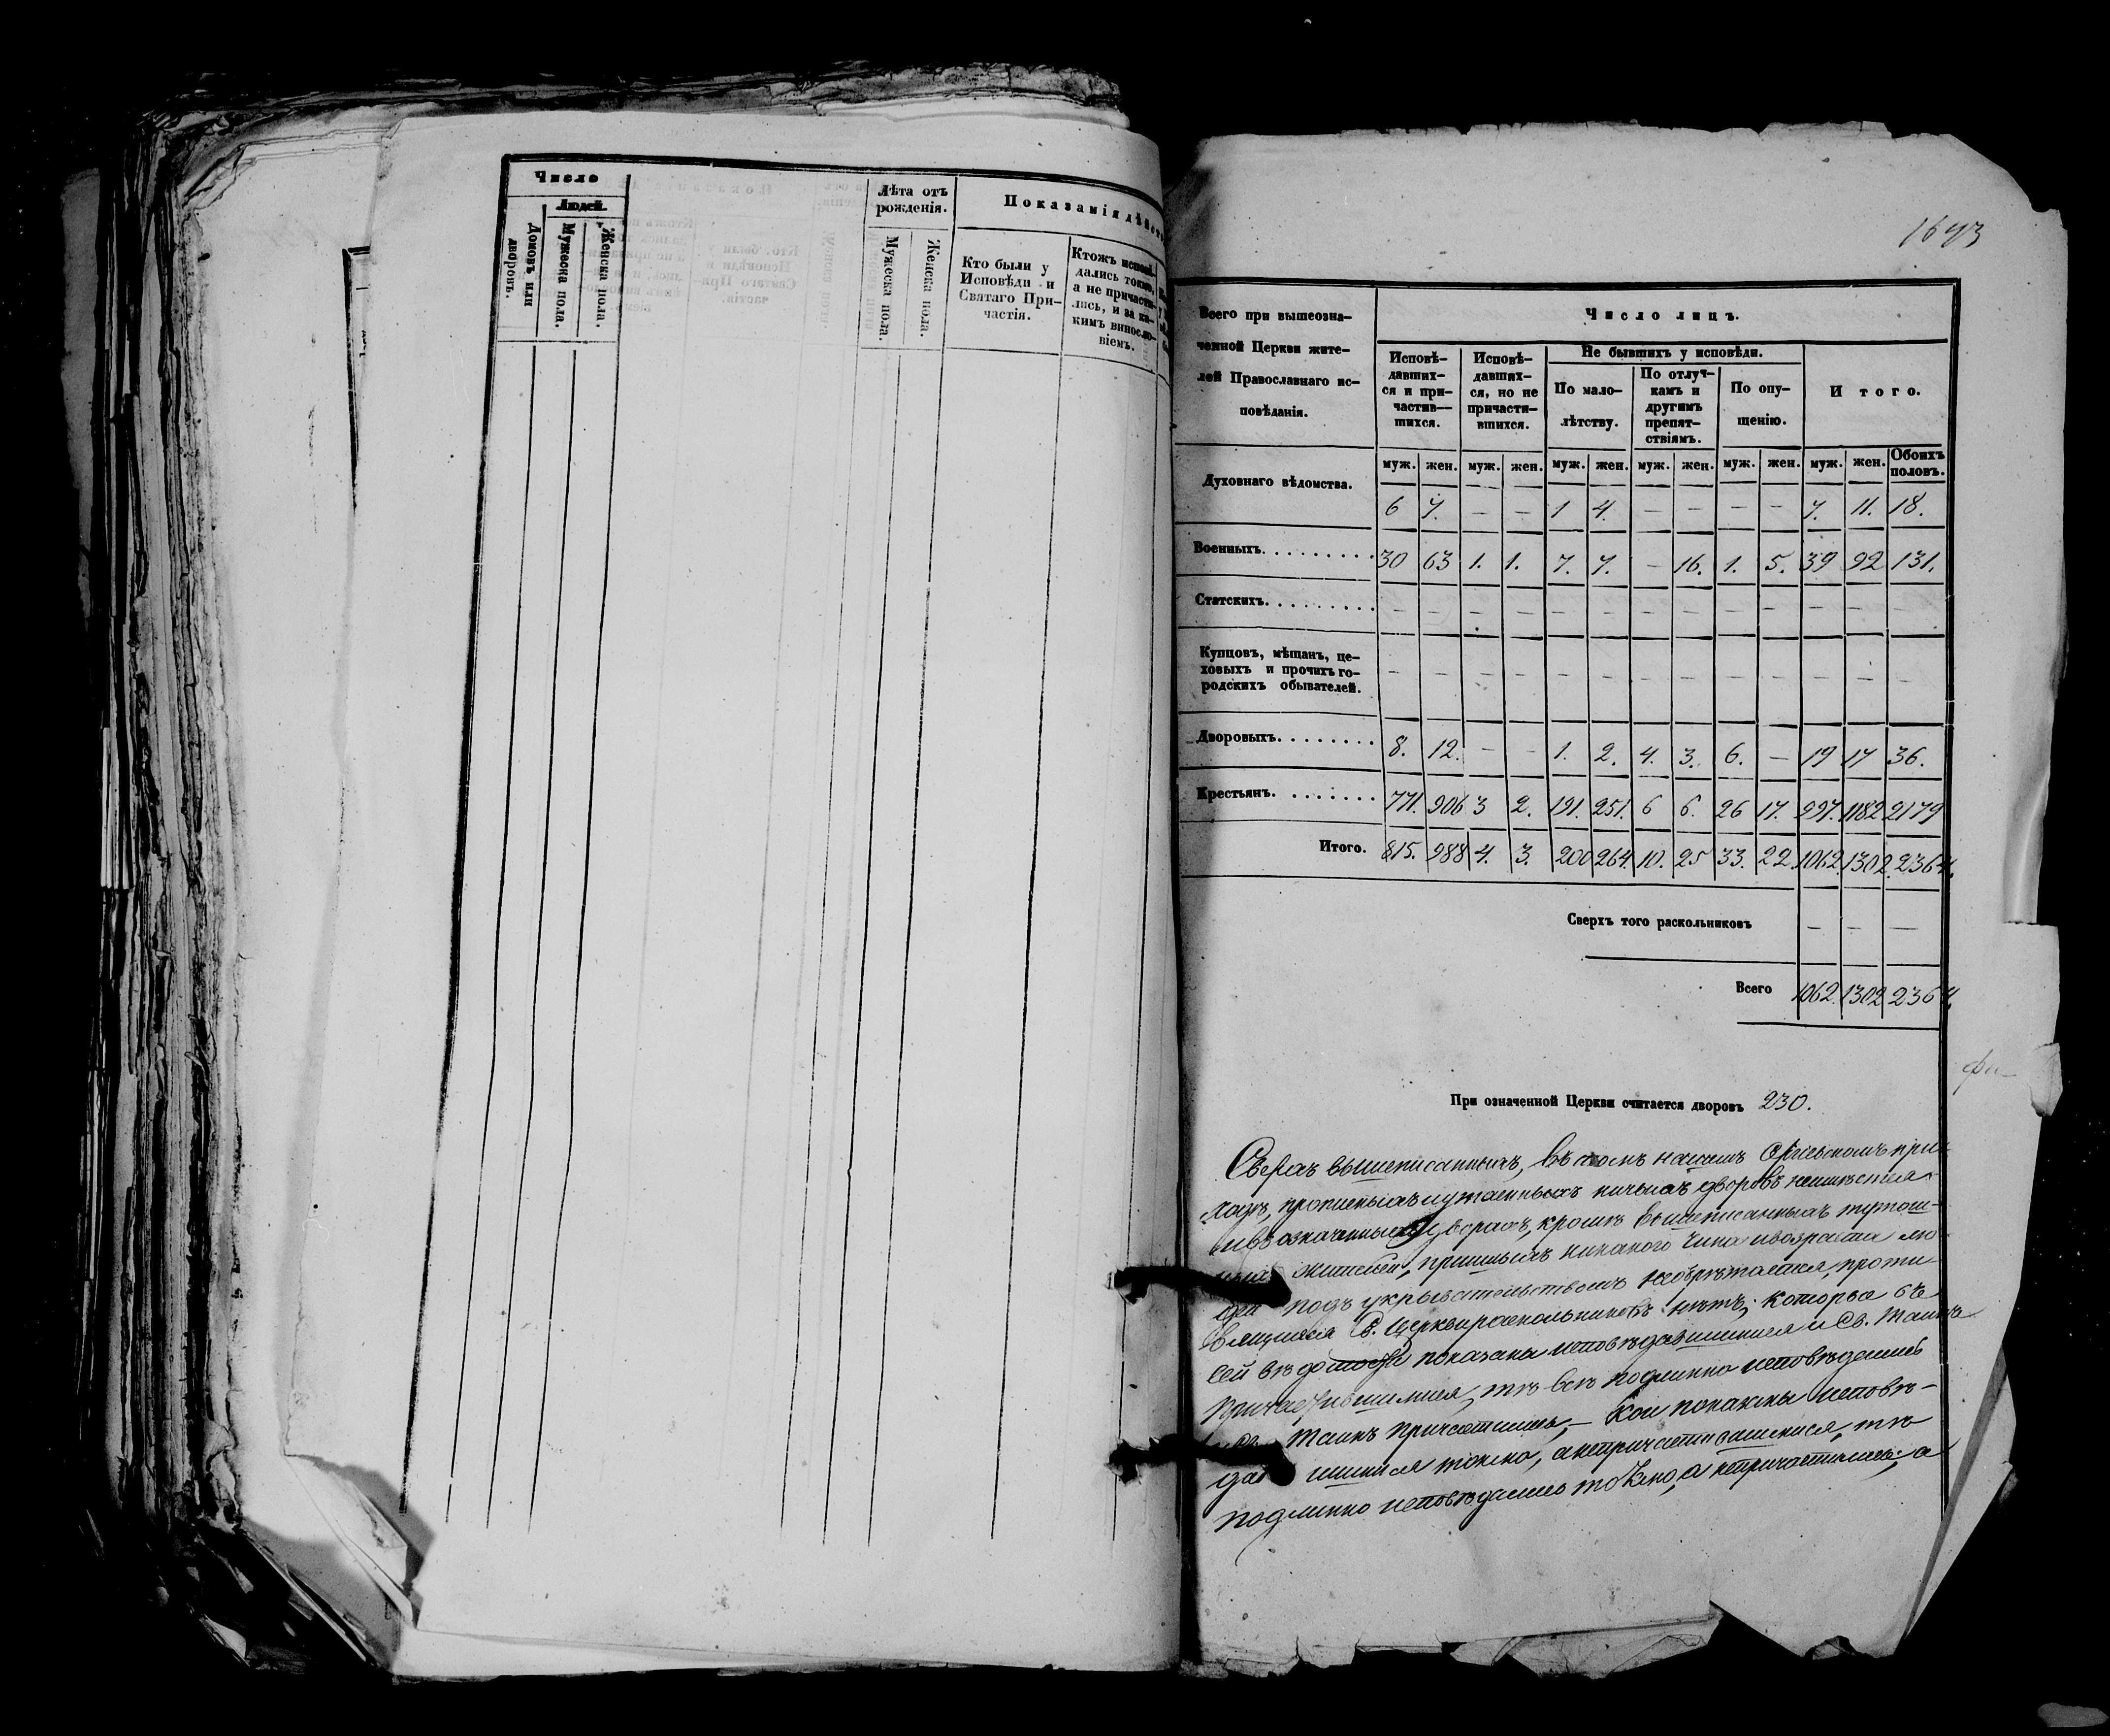 Число
Людей.
Домовъ или дворовъ.
Мужеска пола.
Женска пола.
Лѣта отъ рожденія.
Мужеска пола.
Женска пола.
Показанія дѣйст
Кто были у
Исповѣди и
Святаго При-
частія.
Ктожъ исповѣ-
дались токмо,
а не причасти-
лись, и за ка-
кимъ винословіемъ.
1693
Всего при вышеозна-
ченной Церкви жите-
лей Православнаго ис-
повѣданія.
Число лицъ.
Исповѣ-
давших-
ся и при-
частив-
шихся.
Исповѣ-
давших-
ся, но не
причасти-
вшихся.
Не бывшихъ у исповѣди.
По мало-
лѣтству.
По отлуч-
камъ и
другимъ
препят-
ствіямъ.
По опу-
щенію.
Итого.
муж. жен. муж. жен. муж. жен. муж. жен. муж. жен. муж. жен. Обоихъ половъ.
Духовнаго вѣдомства. 6 7. — — 1 4. — — — — 7. 11. 18.
Военныхъ. 30 63 1. 1. 7. 7. — 16. 1. 5. 39 92 131.
Статскихъ. — — — — — — — — — — — — —
Купцовъ, мѣщанъ, це-
ховыхъ и прочихъ го-
родскихъ обывателей. — — — — — — — — — — — — —
Дворовыхъ. 8. 12. — — 1. 2. 4. 3. 6. — 19 17 36.
Крестьянъ. 771. 906 3 2. 191. 251. 6 6. 26 17. 997. 1182 2179
Итого. 815. 988 4. 3. 200 264. 10. 25 33. 22. 1062. 1302. 2364.
Сверхъ того раскольниковъ — — —
Всего 1062. 1302 2364.
При означенной Церкви считается дворовъ 230.
Сверхъ вышеписанныхъ, въ томъ нашемъ при-
ходѣ, и утаенныхъ ничьихъ дворовъ
дворахъ, кромѣ вышеписанныхъ тутош-
жителей, пришлыхъ никакого чина и возраста лю-
дей подъ укрывательствомъ необрѣтается, проти-
вящихся Св. Церкви раскольниковъ нѣтъ; которые въ
сей вѣдомости показаны исповѣдавшимися и Св. Таинъ
причастившимися, тѣ всѣ подлинно исповѣдались
и Св. Таинъ причастились, — кои показаны исповѣ-
давшимися токмо, а непричастившимися, тѣ
подлинно исповѣдались токмо, а непричастились; а